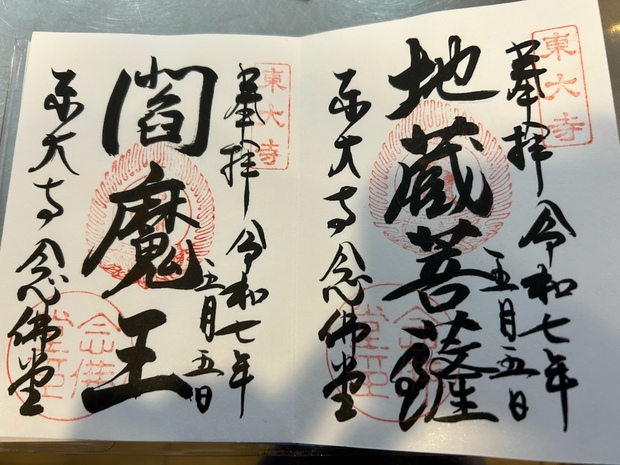 東大寺
奉拝 令和七年
五月五日
地蔵菩薩
東大寺念佛堂
東大寺
奉拝 令和七年
五月五日
閻魔王
東大寺念佛堂